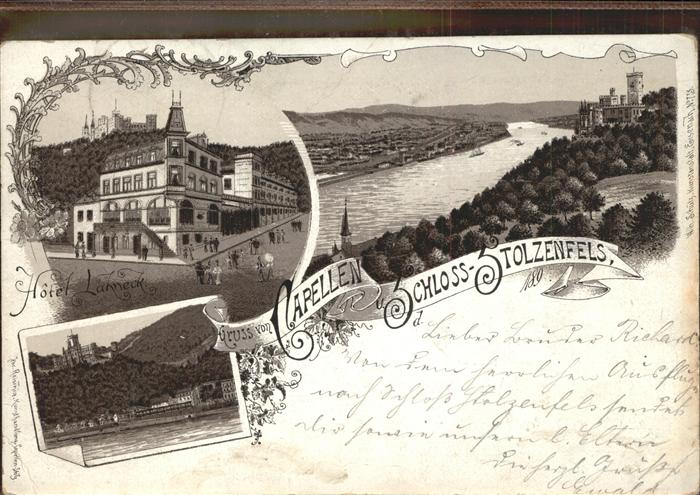 Hôtel Lahneck
Gruss von CAPELLEN u. SCHLOSS-STOLZENFELS,
d. 189
Lieber Bruder Richard
Von dem herrlichen Ausflug
nach Schloß Stolzenfels sendet
Dir sowie unsern l. Eltern
die herzl. Grüße
Ewald